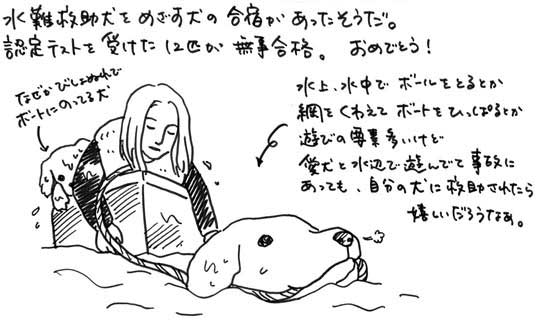 水難救助犬をめざす犬の合宿があったそうだ。
認定テストを受けた12匹が無事合格。 おめでとう!
なぜかびしょぬれで
ボートにのってる犬
水上、水中でボールをとるとか
網をくわえてボートをひっぱるとか
遊びの要素多いけど
愛犬と水辺で遊んでて事故に
あっても、自分の犬に救助されたら
嬉しいだろうなぁ。